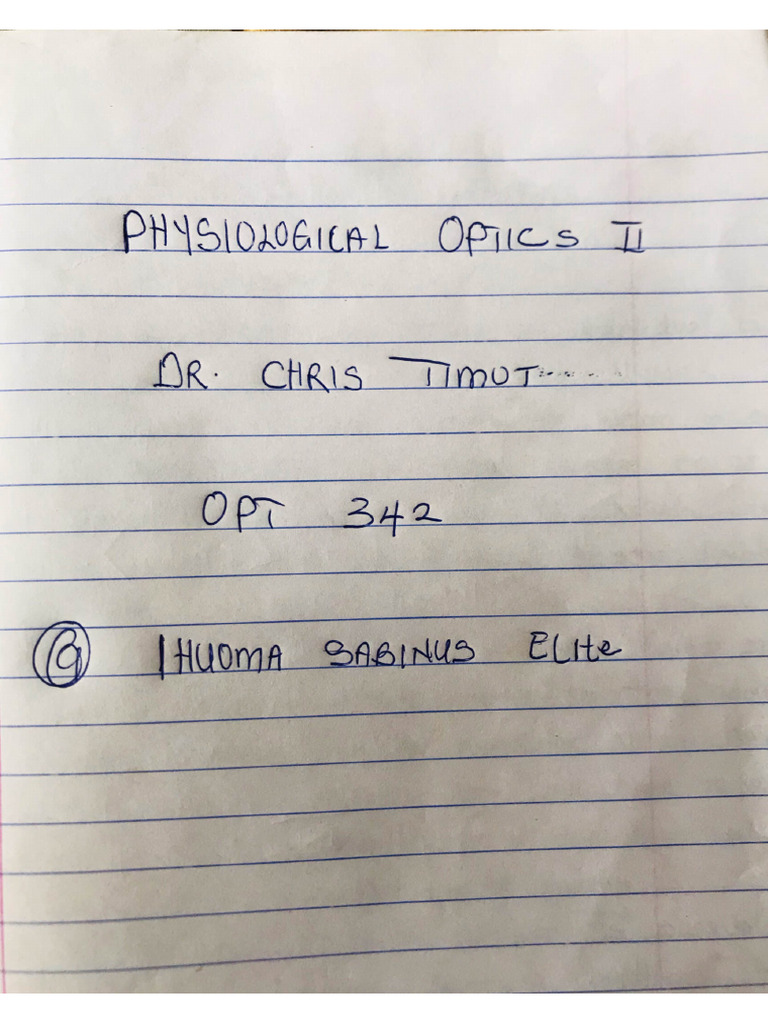 PHYSIOLOGICAL OPTICS II
DR. CHRIS TIMOT
OPT 342
IHUOMA SABINUS ELITE